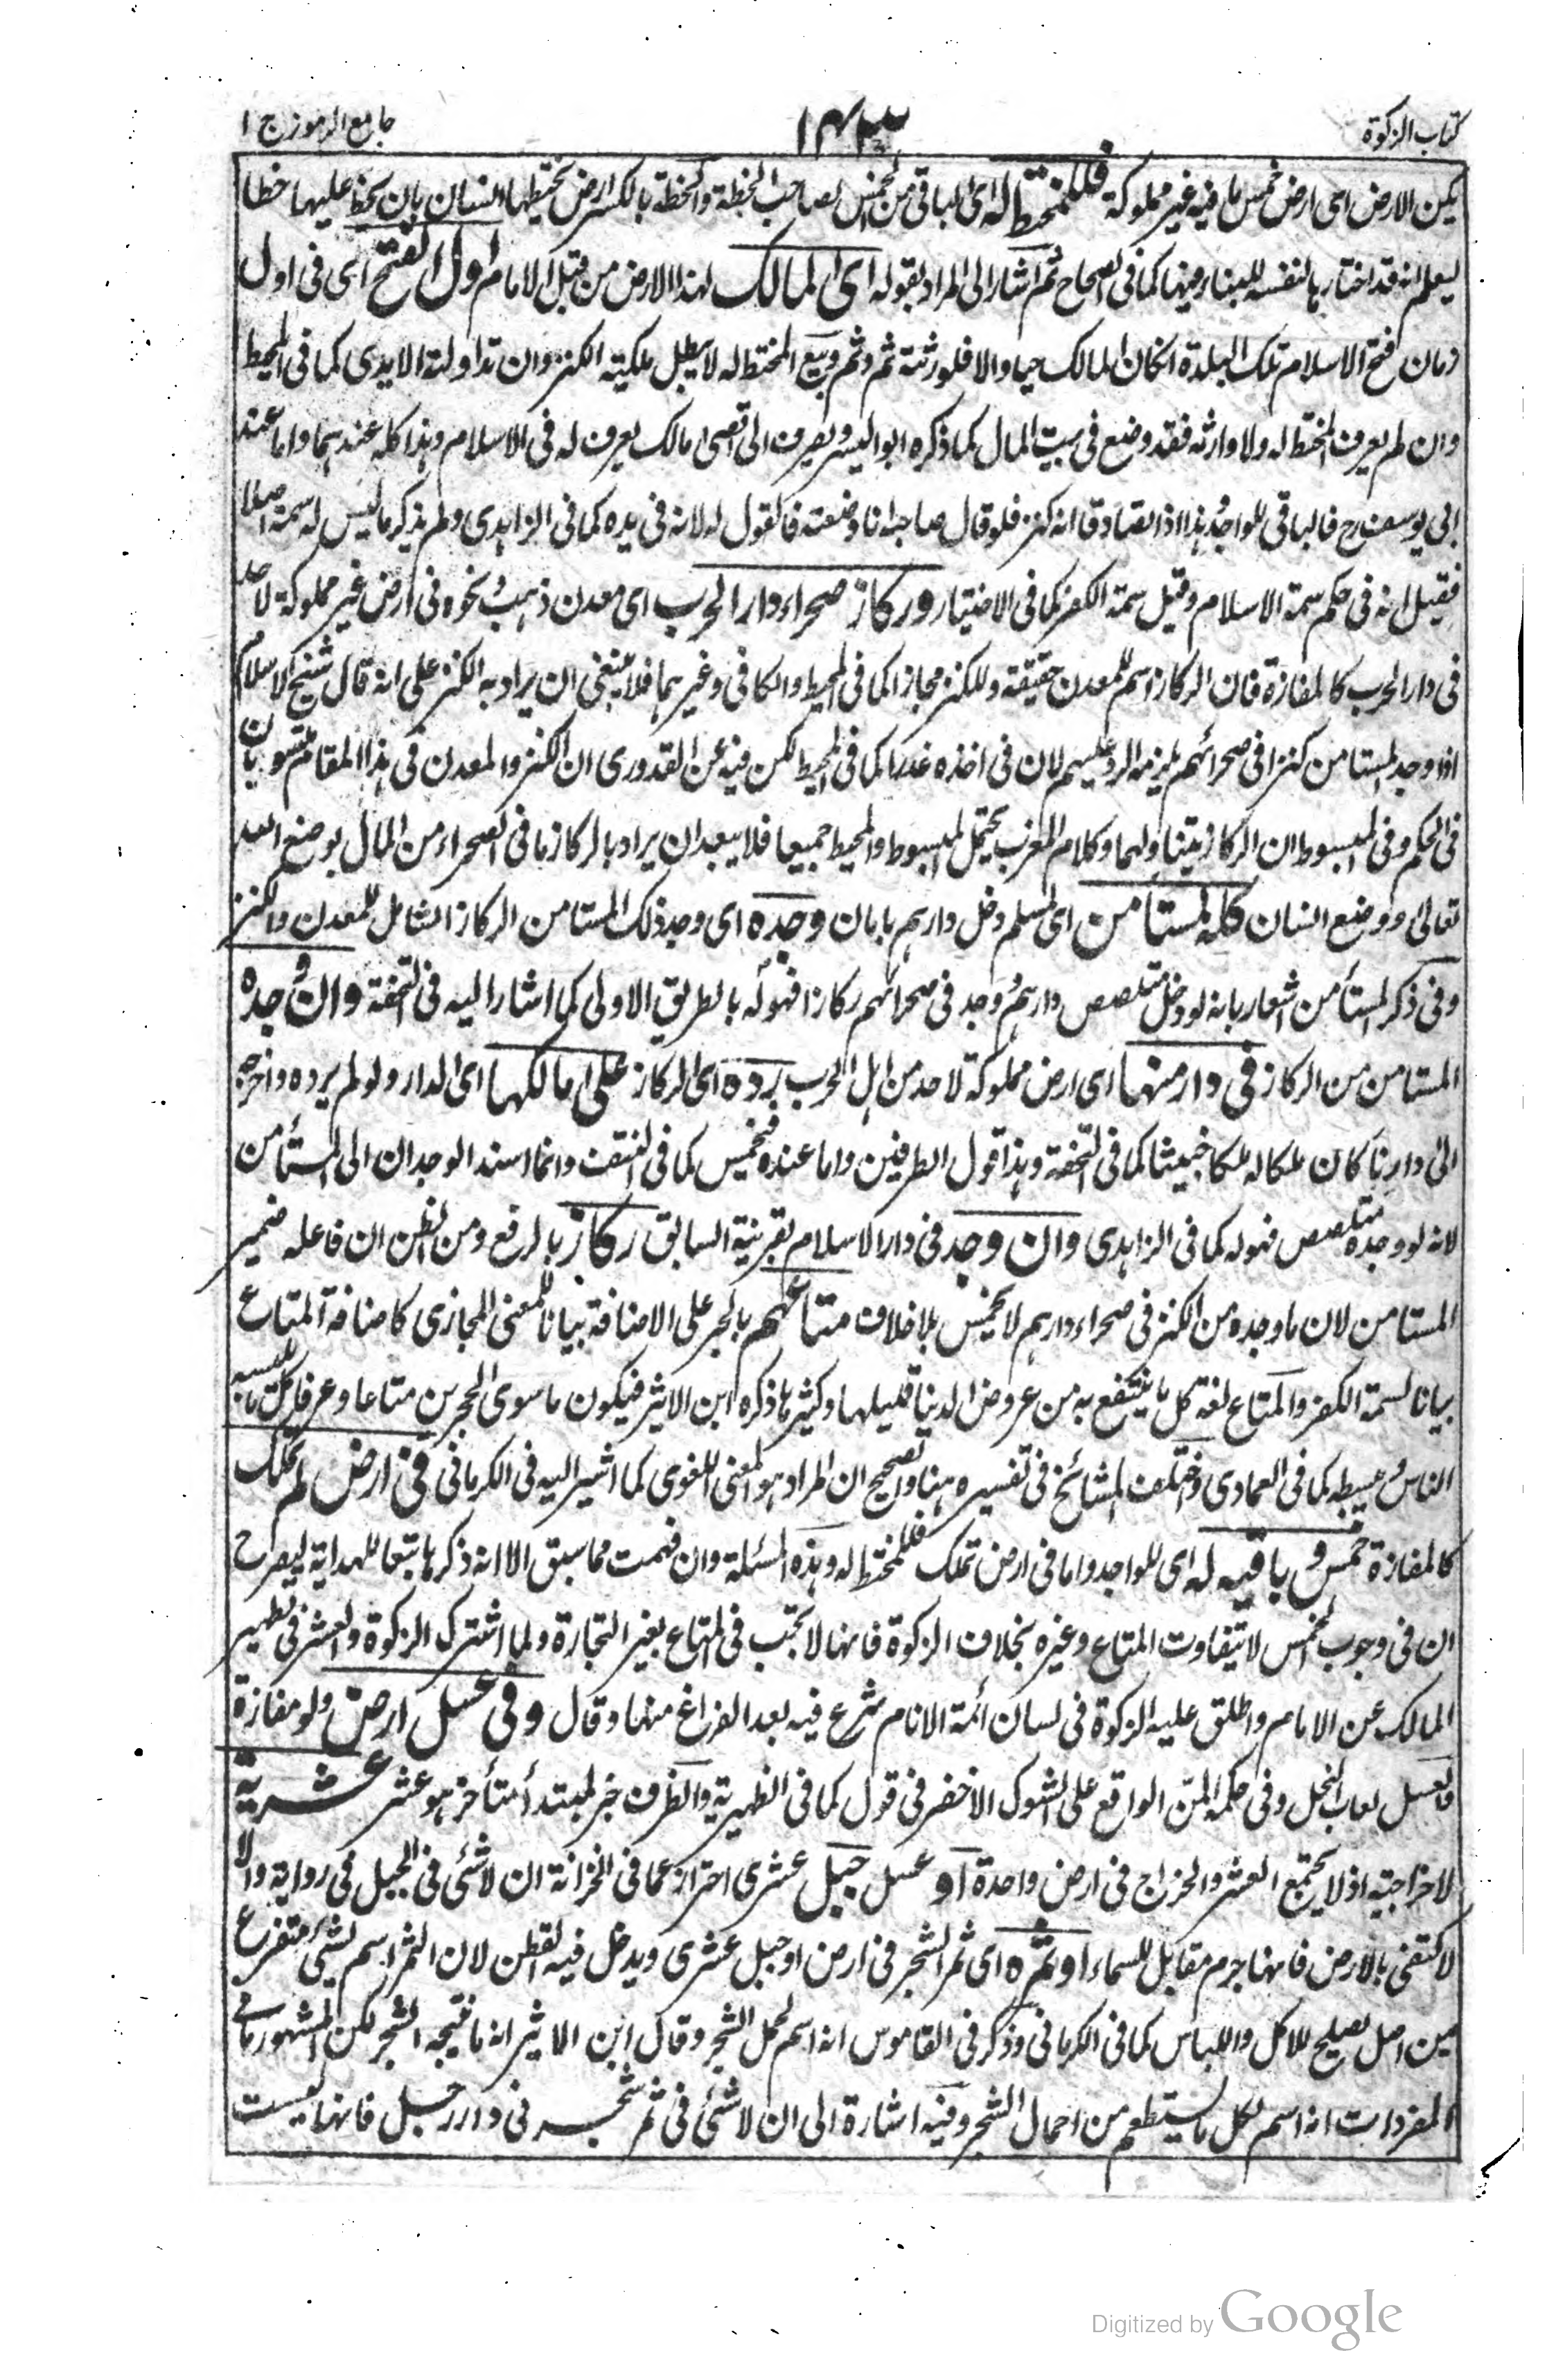 كتاب الزكوة ١٤٣ جامع الرموز ج ا
يكن الارض اى ارض خمس ما فيه غير مملوكة فللمختط له اى الباقى من الخمس لصاحب الخطة والخطة بالكسر ارض يختطها انسان بان يخط عليها خطا
ليعلم انه قد اختارها لنفسه للبناء ومنها كما فى الصحاح ثم اشار الى المراد بقوله اى المالك لهذا الارض من قبل الامام اول الفتح اى فى اول
زمان فتح الاسلام تلك البلدة انكان المالك حيا والا فلورثته ثم وثم وبيع المختط له لا يبطل ملكية الكنز وان تداولته الايدى كما فى المحيط
وان لم يعرف المختط له ولا وارثه فقد وضع فى بيت المال كما ذكره ابو اليسر ويصرف الى اقصى مالك يعرف له فى الاسلام وهذا كله عندهما واما عند
ابى يوسف رح فالباقى للواجد هذا اذا تصادقا انه كنز فلو قال صاحبه انا وضعته فالقول له لانه فى يده كما فى الزاهدى ولم يذكر ما ليس له سمة اصلا
فقيل انه فى حكم سمة الاسلام وقيل سمة الكفر كما فى الاختيار وركاز صحراء دار الحرب اى معدن ذهب ونحوه فى ارض غير مملوكة لاحد
فى دار الحرب كالمفازة فان الركاز اسم للمعدن حقيقة وللكنز مجازا كما فى المحيط والكافى وغيرهما فلا ينبغى ان يراد به الكنز على انه قال شيخ الاسلام
اذا وجد المستامن كنزا فى صحرائهم يلزمه الرد عليهم لان فى اخذه غدرا كما فى المحيط لكن فيه عن القدورى ان الكنز والمعدن فى هذا المقام يتسويان
فى الحكم وفى المبسوط ان الركاز يتناولهما وكلام المغرب يحتمل المبسوط والمحيط جميعا فلا يبعد ان يراد بالركاز ما فى الصحراء من المال بوضع الله
تعالى ووضع انسان كله لمستامن اى لمسلم دخل دارهم بامان وجده اى وجد ذلك المستامن الركاز الشامل للمعدن والكنز
وفى ذكر المستأمن اشعار بانه لو دخل متلصص دارهم ووجد فى صحرائهم ركازا فهو له بالطريق الاولى كما اشار اليه فى التحفة وان وجده
المستامن من الركاز فى دار منها اى ارض مملوكة لاحد من اهل الحرب رده اى الركاز على مالكها اى الدار ولو لم يرده واخرجه
الى دارنا كان ملكا له ملكا خبيثا كما فى التحفة وهذا قول الطرفين واما عنده فيخمس كما فى النتف وانما اسند الوجدان الى المستأمن
لانه لو وجده متلصص فهو له كما فى الزاهدى وان وجد فى دار الاسلام بقرينة السابق ركاز بالرفع ومن الظن ان فاعله ضمير
المستامن لان ما وجده من الكنز فى صحراء دارهم لا يخمس بلا خلاف متاعهم بالجر على الاضافة بيانا للمعنى المجازى كاضافة المتاع
بيانا لسمة الكفر والمتاع لغة كل ما ينتفع به من عروض الدنيا قليلها وكثيرها ذكره ابن الاثير فيكون ما سوى الحجرين متاعا وعرفا كل ما يلبسه
الناس ويبسط كما فى العمادى واختلف المشائخ فى تفسيره هنا والصحيح ان المراد هو المعنى اللغوى كما اشير اليه فى الكرمانى فى ارض لم تملك
كالمفازة خمس وباقيه له اى للواجد واما فى ارض تملك فللمختط له وهذه المسئلة وان فهمت مما سبق الا انه ذكرها تبعا للهداية ليصرح
ان فى وجوب الخمس لا يتفاوت المتاع وغيره بخلاف الزكوة فانها لا تجب فى المتاع بغير التجارة ولما اشترك الزكوة والعشر فى تطهير
المالك عن الاثام واطلق عليه الزكوة فى لسان ائمة الانام شرع فيه بعد الفراغ منها وقال وفى عسل ارض ولو مفازة
فالعسل لعاب النحل وفى حكمه المن الواقع على الشوك الاخضر فى قول كما فى الظهيرية والظرف خبر لمبتدأ متأخر هو عشر عشرية
لا خراجية اذ لا يجتمع العشر والخراج فى ارض واحدة او عسل جبل عشرى احتراز عما فى الخزانة ان لا شئ فى الجبل فى رواية والا
لاكتفى بالارض فانها جرم مقابل للسماء او ثمره اى ثمر الشجر فى ارض او جبل عشرى ويدخل فيه القطن لان الثمر اسم لشئ متفرع
من اصل يصلح للاكل واللباس كما فى الكرمانى وذكر فى القاموس انه اسم لحمل الشجر وقال ابن الاثير انه ما ينتجه الشجر لكن المشهور ما فى
المفردات انه اسم لكل ما يستطعم من احمال الشجر وفيه اشارة الى ان لا شئ فى ثمر شجر فى دار رجل فانها ليست
Digitized by Google